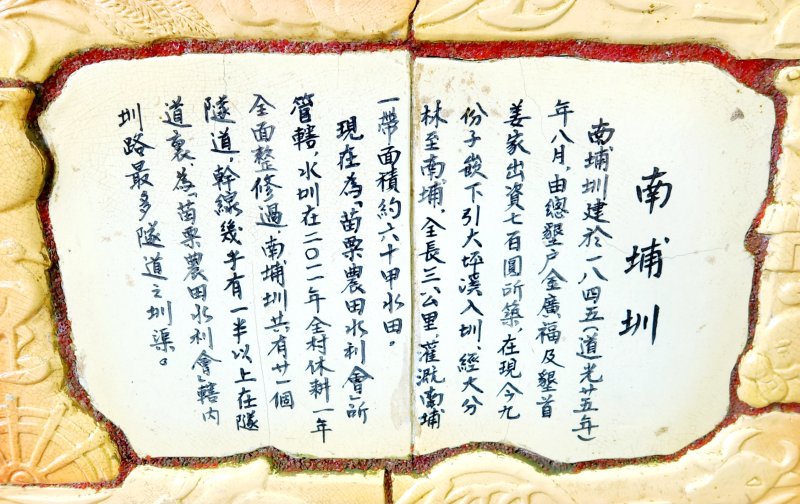 南埔圳
南埔圳建於一八四五(道光廿五年)
年八月,由總墾户金廣福及墾首
姜家出資七百圓所築,在現今九
份子崁下引大坪溪入圳,經大分
林至南埔,全長三、公里,灌溉南埔
一帶面積約六十甲水田。
現在為「苗栗農田水利會」所
管轄,水圳在二〇一一年全村休耕一年
全面整修過南埔圳共有廿一個
隧道,幹線幾乎有一半以上在隧
道裏,為「苗栗農田水利會」轄內
圳路最多隧道之圳渠。